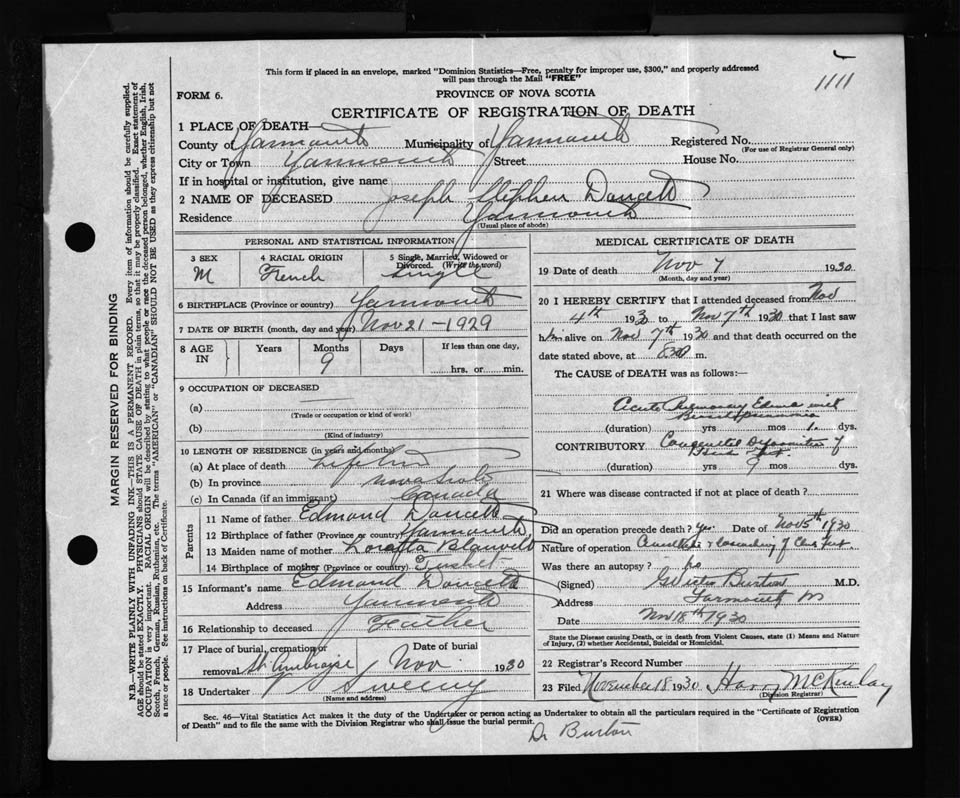 1111
This form if placed in an envelope, marked "Dominion Statistics—Free, penalty for improper use, $300," and properly addressed
will pass through the Mail "FREE"
FORM 6.
PROVINCE OF NOVA SCOTIA
CERTIFICATE OF REGISTRATION OF DEATH
1 PLACE OF DEATH—
County of Yarmouth Municipality of Yarmouth Registered No.
(For use of Registrar General only)
City or Town Yarmouth Street House No.
If in hospital or institution, give name
2 NAME OF DECEASED Joseph Stephen Doucett
Residence Yarmouth
(Usual place of abode)
PERSONAL AND STATISTICAL INFORMATION
3 SEX 4 RACIAL ORIGIN 5 Single, Married, Widowed or
Divorced. (Write the word)
M French Single
6 BIRTHPLACE (Province or country) Yarmouth
7 DATE OF BIRTH (month, day and year) Nov 21-1929
8 AGE IN Years Months Days If less than one day,
9 hrs. or min.
9 OCCUPATION OF DECEASED
(a)
(Trade or occupation or kind of work)
(b)
(Kind of industry)
10 LENGTH OF RESIDENCE (in years and months)
(a) At place of death
(b) In province Nova Scotia
(c) In Canada (if an immigrant) Canada
Parents
11 Name of father Edmond Doucett
12 Birthplace of father (Province or country) Yarmouth
13 Maiden name of mother Loretta Blauvelt
14 Birthplace of mother (Province or country)
15 Informant's name Edmond Doucett
Address Yarmouth
16 Relationship to deceased Father
17 Place of burial, cremation or Date of burial
removal St. Ambroise Nov. 1930
18 Undertaker Sweeny
(Name and address)
MEDICAL CERTIFICATE OF DEATH
19 Date of death Nov 7 1930
(Month, day and year)
20 I HEREBY CERTIFY that I attended deceased from Nov
4th 1930 to Nov 7th 1930 that I last saw
him alive on Nov 7th 1930 and that death occurred on the
date stated above, at m.
The CAUSE of DEATH was as follows:—
Acute Pulmonary Edema with
Bronchopneumonia
(duration) yrs mos 1. dys.
CONTRIBUTORY Congenital Deformities of
(duration) yrs 9 mos dys.
21 Where was disease contracted if not at place of death?
Did an operation precede death? Yes. Date of Nov 5th 1930
Nature of operation of Club Feet.
Was there an autopsy? No
(Signed) Burton M.D.
Address Yarmouth NS
Date Nov 18th 1930
State the Disease causing Death, or in death from Violent Causes, state (1) Means and Nature
of Injury, (2) whether Accidental, Suicidal or Homicidal.
22 Registrar's Record Number
23 Filed November 18 1930 Harry McKinlay
(Division Registrar)
Sec. 46—Vital Statistics Act makes it the duty of the Undertaker or person acting as Undertaker to obtain all the particulars required in the "Certificate of Registration
of Death" and to file the same with the Division Registrar who shall issue the burial permit.
(OVER)
Dr Burton
MARGIN RESERVED FOR BINDING
N.B.—WRITE PLAINLY WITH UNFADING INK—THIS IS A PERMANENT RECORD. Every item of information should be carefully supplied.
AGE should be stated EXACTLY. PHYSICIANS should STATE CAUSE OF DEATH in plain terms, so that it may be properly classified. Exact statement of
OCCUPATION is very important. RACIAL ORIGIN will be described by stating to what people or race the deceased person belonged, whether English, Irish,
Scotch, French, German, Russian, Ruthenian, etc. The terms "AMERICAN" or "CANADIAN" SHOULD NOT BE USED as they express citizenship but not
a race or people. See instructions on back of Certificate.